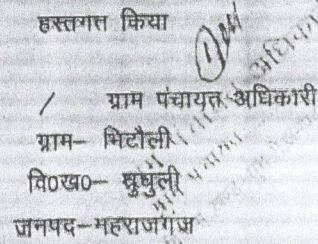 हस्तगत्त किया
ग्राम पंचायत अधिकारी
ग्राम- भिटौली
वि0ख0- घुघुली
जनपद-महराजगंज